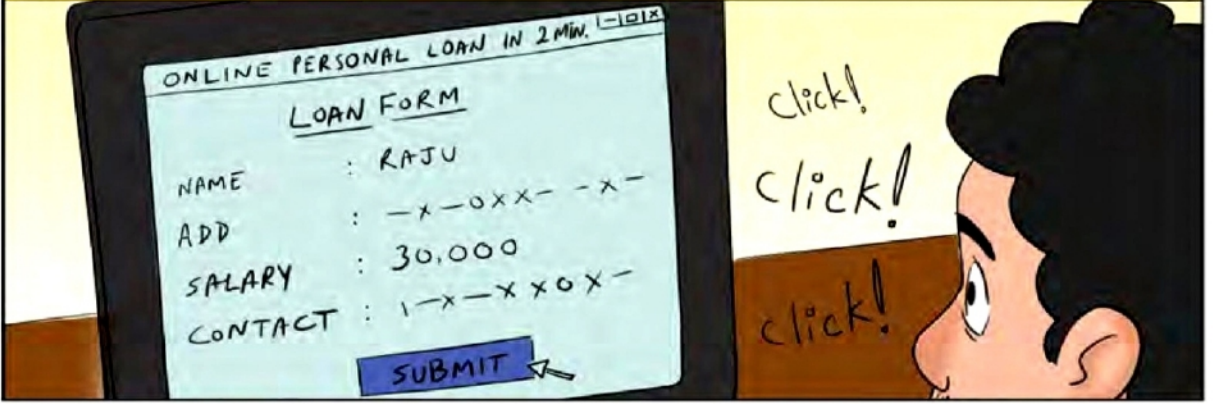 ONLINE PERSONAL LOAN IN 2 MIN.
LOAN FORM
NAME : RAJU
ADD : -x-0xx- -x-
SALARY : 30,000
CONTACT : 1-x-xx0x-
SUBMIT
Click!
Click!
Click!